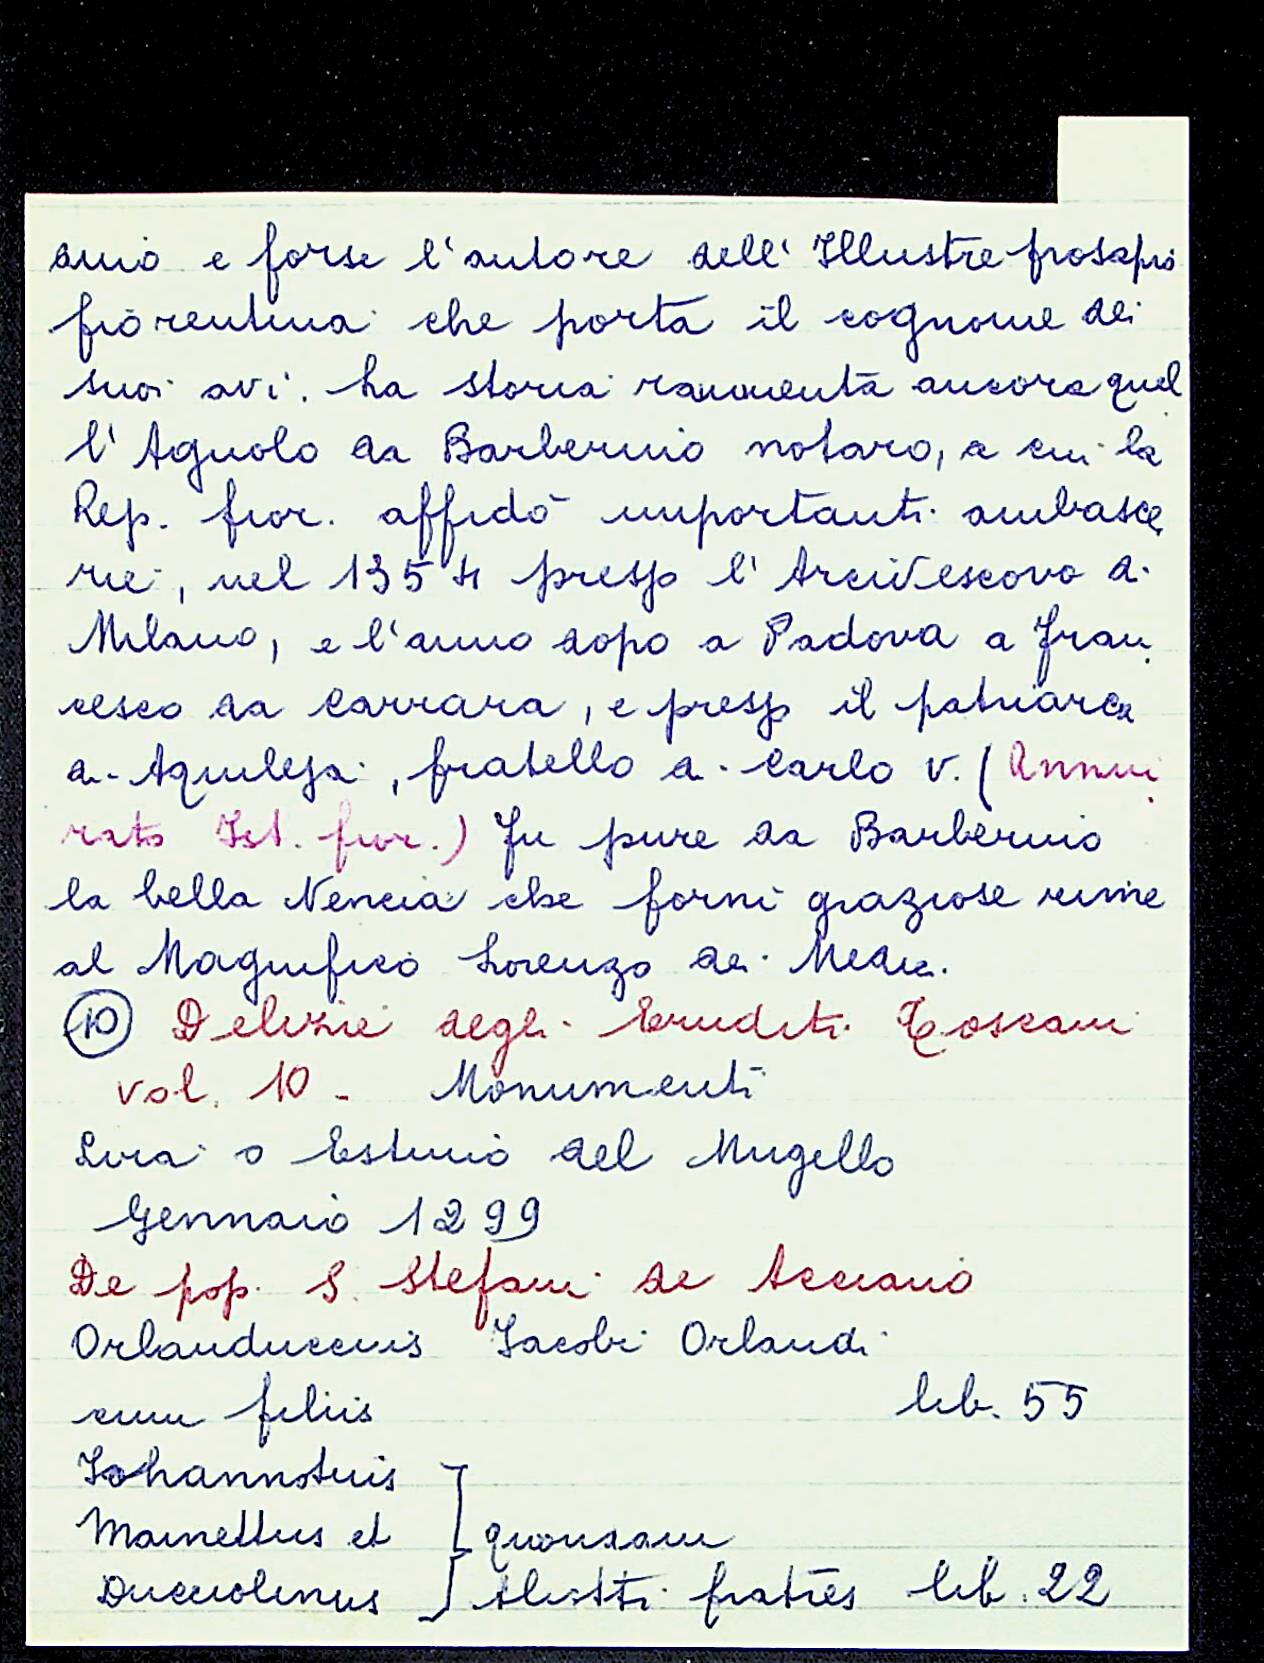 dino e forse l'autore dell' Illustre prosapia
fiorentina che porta il cognome dei
suoi avi. La storia rammenta ancora quel
l'Agnolo da Barberino notaro, a cui la
Rep. fior. affidò importanti ambasce
rie, nel 1354 presso l'Arcivescovo di
Milano, e l'anno dopo a Padova a Fran
cesco da Carrara, e presso il patriarca
di Aquileja, fratello di Carlo V. (Ammi
rato Ist. fior.) Fu pure da Barberino
la bella Nencia che fornì graziose rime
al Magnifico Lorenzo dei Medici.
10 Delizie degli Eruditi Toscani
vol. 10 - Monumenti
Lira o Estimo del Mugello
Gennaio 1299
De pop. S. Stefani de Acciano
Orlanduccius Jacobi Orlandi
cum filiis lib. 55
Johannotuis
Mainettus et quondam
Ducciolinus fratres lib. 22